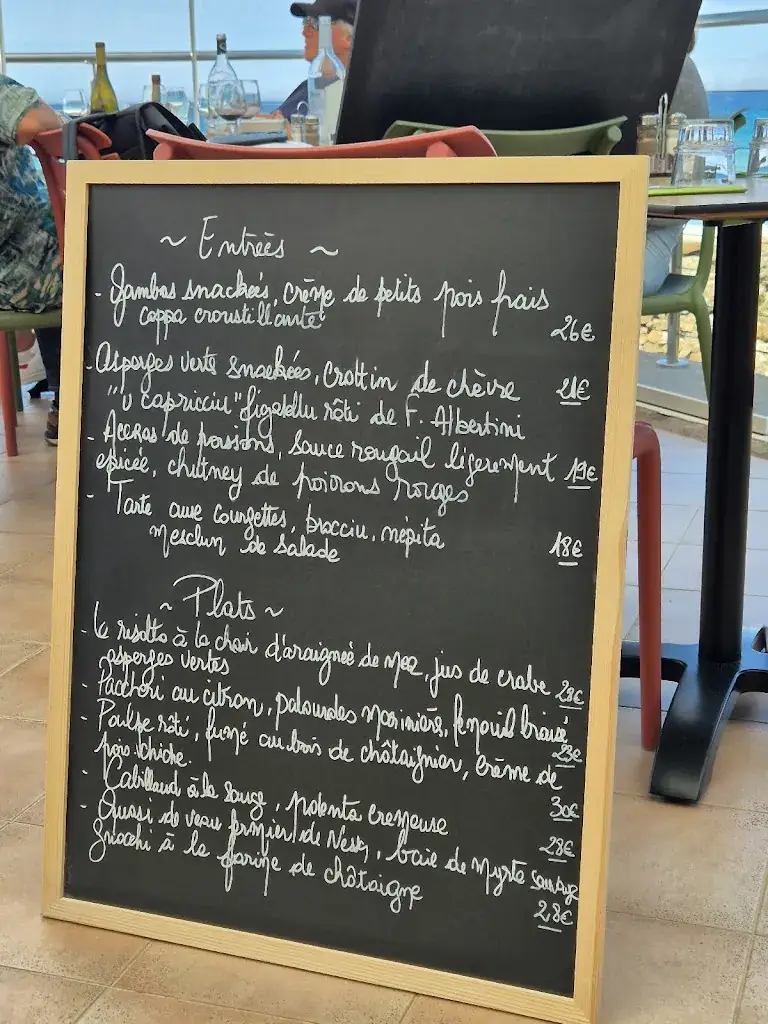 ~ Entrées ~
- Gambas snackées, crème de petits pois frais
coppa croustillante 26€
- Asperges verts snackées, Crottin de chèvre 21€
"u capricciu" figatellu rôti de F. Albertini
- Accras de poissons, sauce rougail légèrement 19€
épicée, chutney de poivrons rouges
- Tarte aux courgettes, brocciu, népita
Mesclun de salade 18€
~ Plats ~
- Le risotto à la chair d'araignée de mer, jus de crabe
asperges vertes
- Paccheri au citron, palourdes marinière, fenouil braisé
- Poulpe rôti, fumé au bois de châtaignier, crème de
pois chiche. 30€
- Cabillaud à la sauge, polenta cremeuse 28€
- Quasi de veau fermier de, baie de Myrte sauvage
gniocchi à la farine de châtaigne 28€